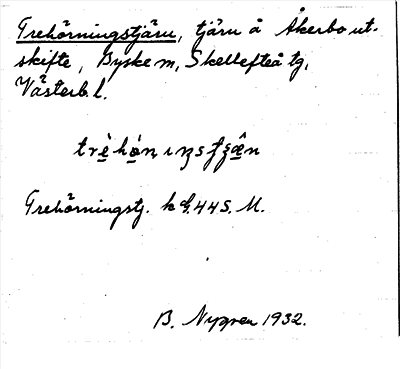 Trehörningstjärn, tjärn å Åkerbo ut-
skifte, Byske sn, Skellefteå tg,
Västerb. l.
Trehörningstj. k bl. 44 S. M.
B. Nygren 1932.